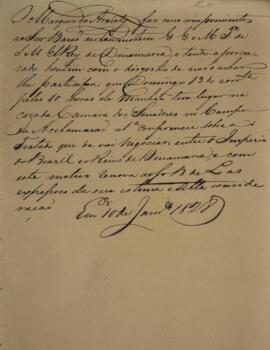 O Marquez do Aracaty faz seus comprimentos
ao Snr Barão
S. M. ElRey de Dinamarca, e tendo o procu
rado hontem com o disgosto de não o achar
lhe participa que Domingo 13 do corrte
pelas 10 horas da Manhãa terá lugar na
caza da Camara dos Senadores no Campo
da Acclamação a 1ª conferencia sobre o
Tratado que se vai negociar entre o Imperio
do Brazil e o Reino de Dinamarca, e com
este motivo renova ao Sr B de L as
expressoens da sua estima e alta conside
ração
Em 10 de Janro 1828